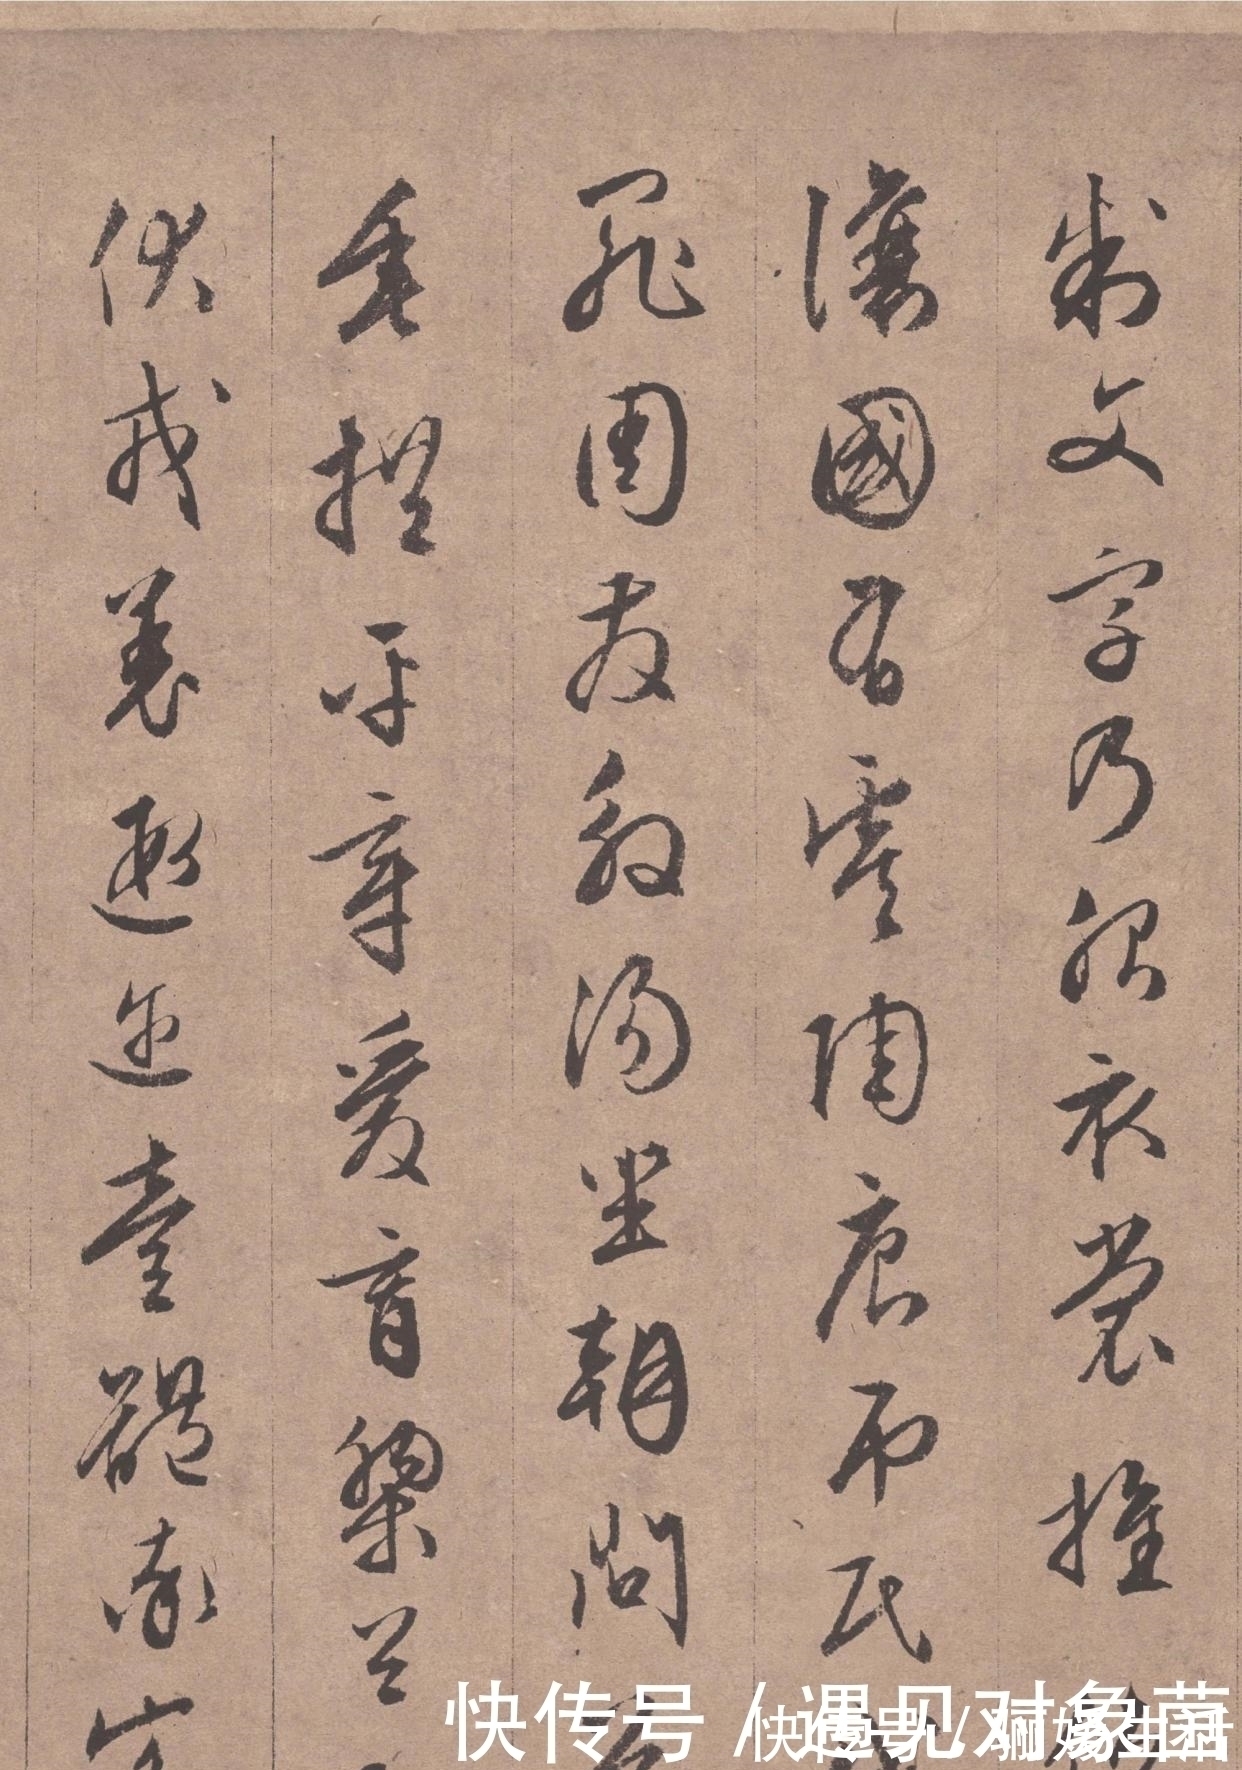 制文字乃服衣裳推
讓國有虞陶唐吊民
罪周發殷湯坐朝問
垂拱平章愛育黎首
伏戎羌遐邇壹體率賓
快传号/遇见对象菌